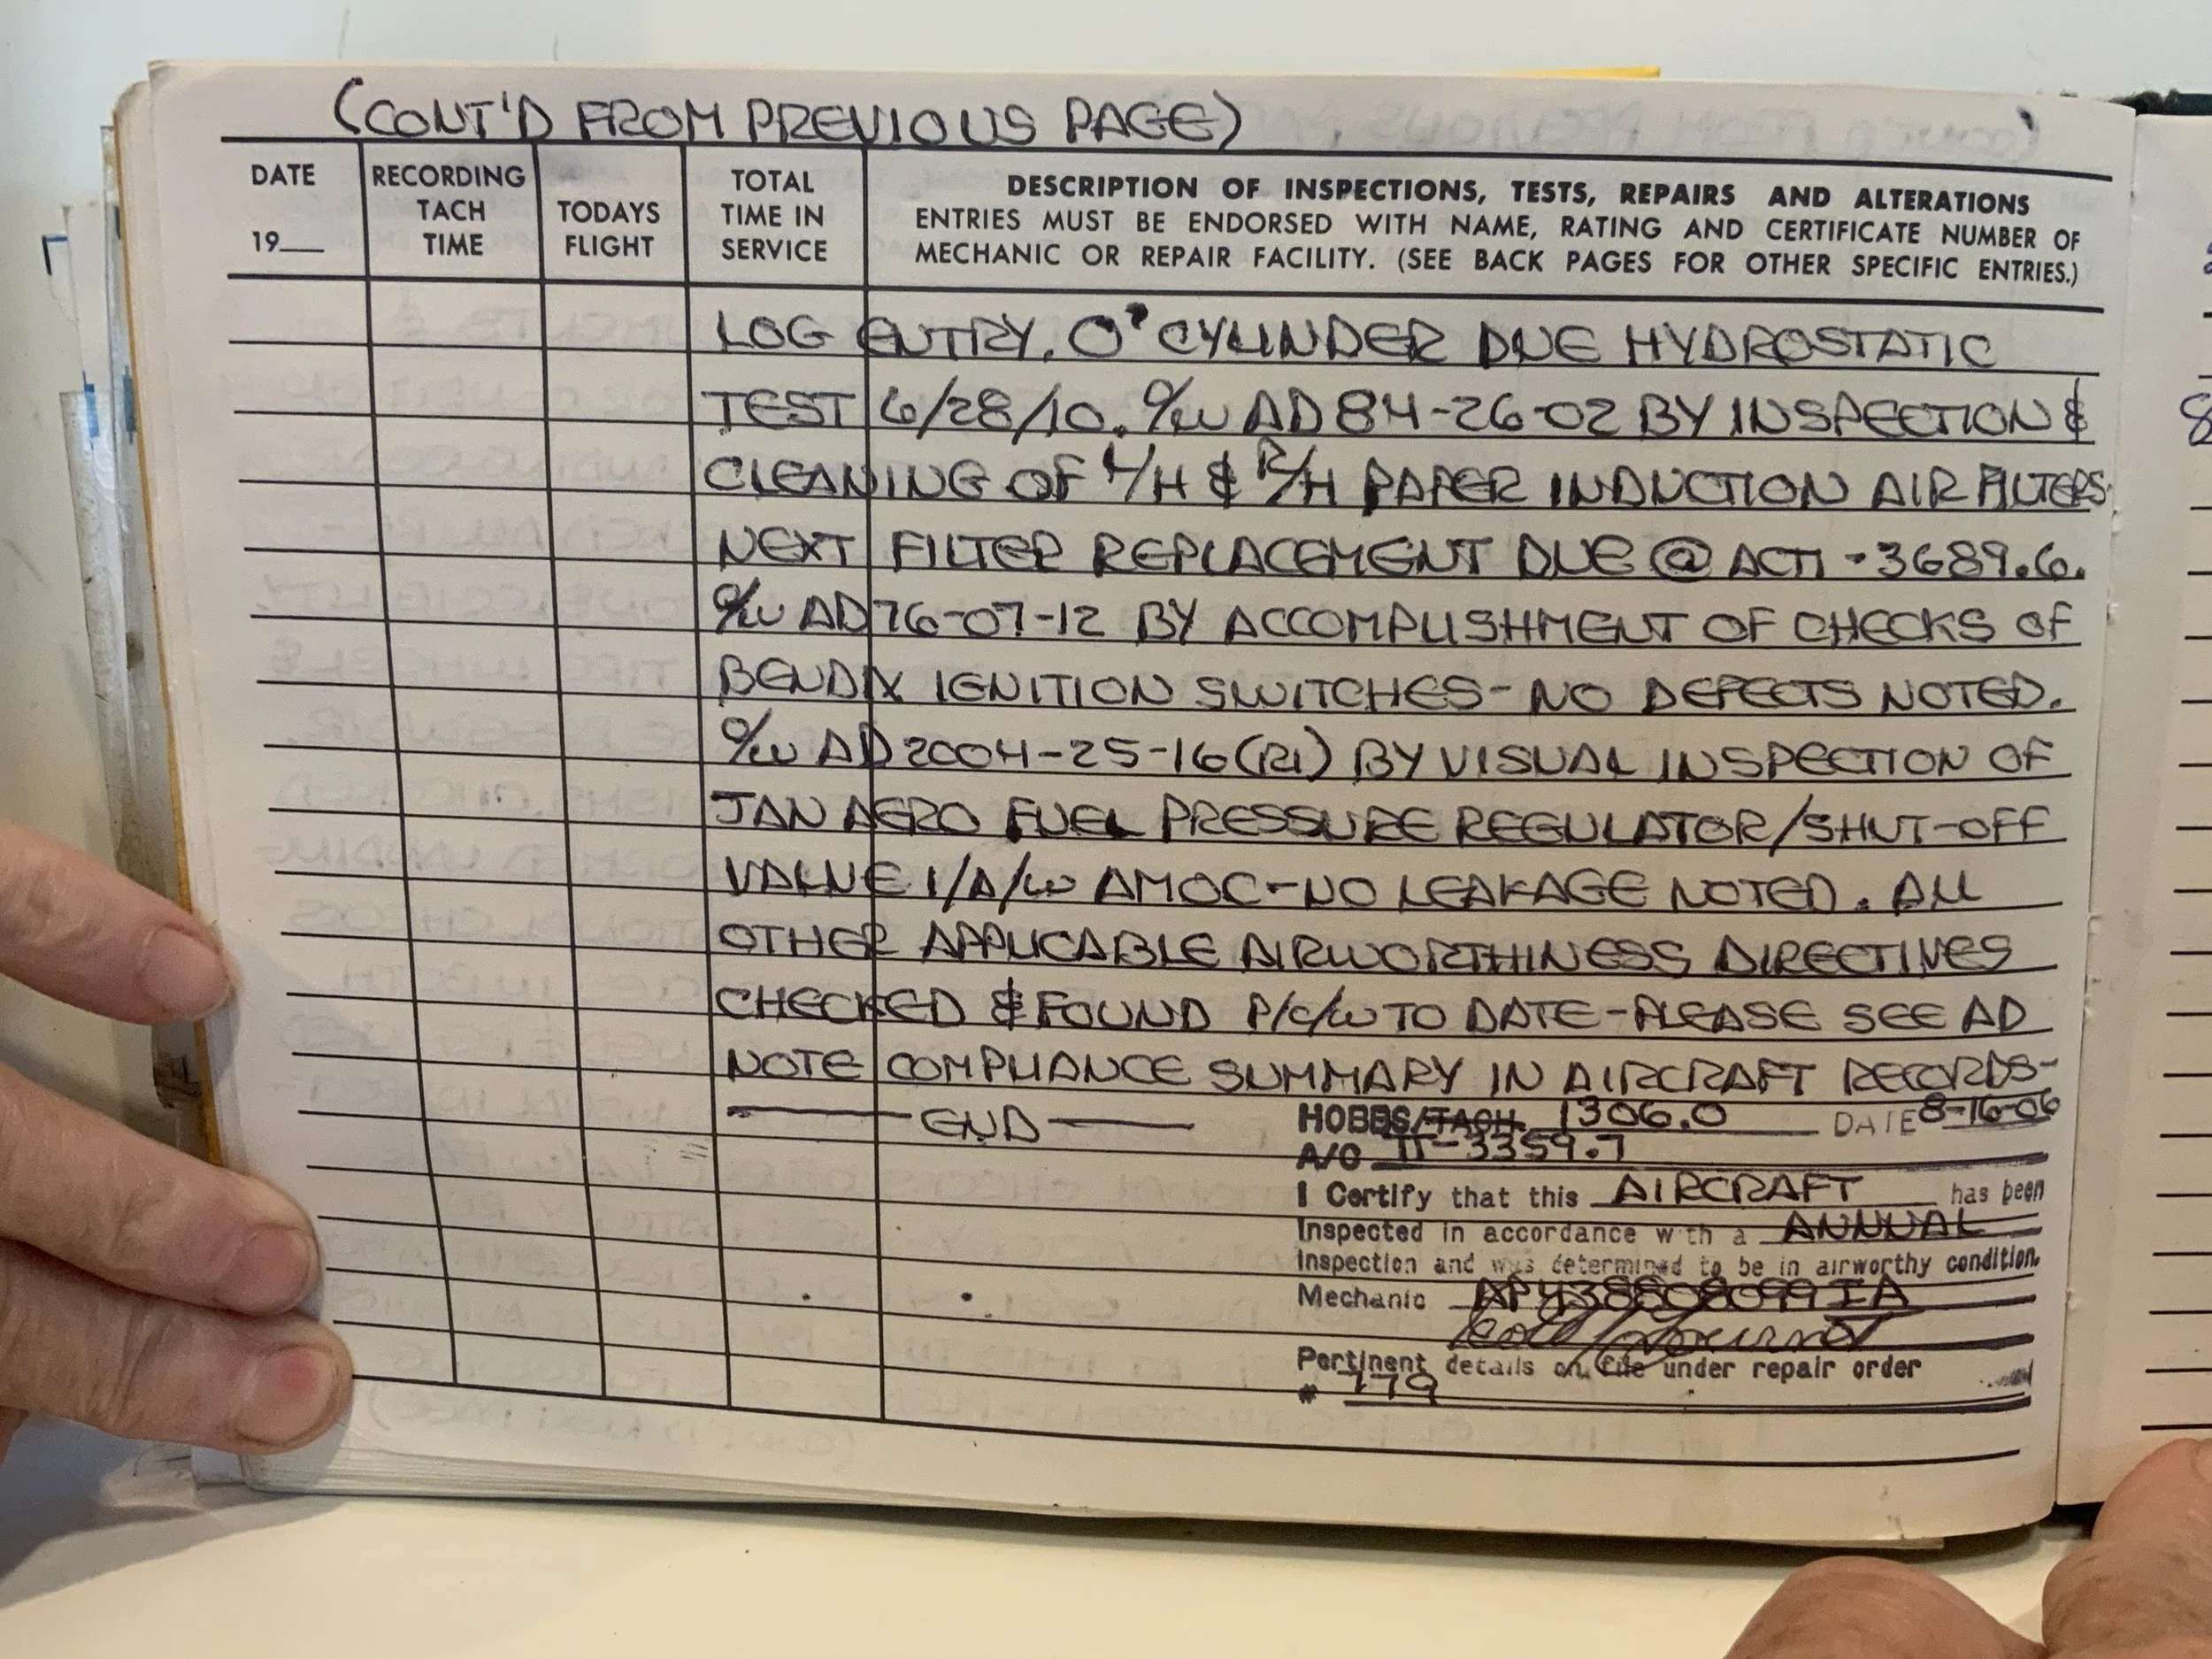 (CONT'D FROM PREVIOUS PAGE)
DATE
19__
RECORDING
TACH
TIME
TODAYS
FLIGHT
TOTAL
TIME IN
SERVICE
DESCRIPTION OF INSPECTIONS, TESTS, REPAIRS AND ALTERATIONS
ENTRIES MUST BE ENDORSED WITH NAME, RATING AND CERTIFICATE NUMBER OF
MECHANIC OR REPAIR FACILITY. (SEE BACK PAGES FOR OTHER SPECIFIC ENTRIES.)
LOG ENTRY. O² CYLINDER DUE HYDROSTATIC
TEST 6/28/10. C/W AD 84-26-02 BY INSPECTION &
CLEANING OF L/H & R/H PAPER INDUCTION AIR FILTERS.
NEXT FILTER REPLACEMENT DUE @ ACTT - 3689.6.
C/W AD 76-07-12 BY ACCOMPLISHMENT OF CHECKS OF
BENDIX IGNITION SWITCHES - NO DEFECTS NOTED.
C/W AD 2004-25-16 (R1) BY VISUAL INSPECTION OF
JAN AERO FUEL PRESSURE REGULATOR/SHUT-OFF
VALVE I/A/W AMOC - NO LEAKAGE NOTED. ALL
OTHER APPLICABLE AIRWORTHINESS DIRECTIVES
CHECKED & FOUND P/C/W TO DATE - PLEASE SEE AD
NOTE COMPLIANCE SUMMARY IN AIRCRAFT RECORDS -
— END —
HOBBS/TACH. 1306.0 DATE 8-16-06
A/C TT-3359.7
I Certify that this AIRCRAFT has been
Inspected in accordance with a ANNUAL
Inspection and was determined to be in airworthy condition.
Mechanic AP438808099IA
Pertinent details on file under repair order
# 779
8